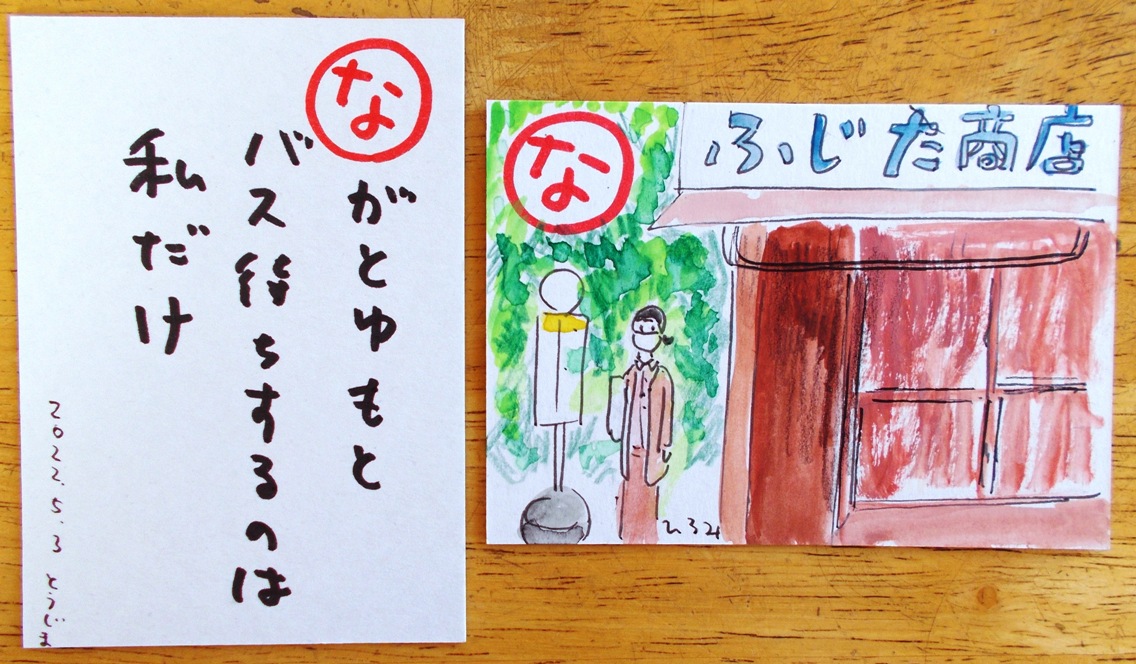 ながとゆもと
バス待ちするのは
私だけ
2022.5.3 とうじま
な
ふじた商店